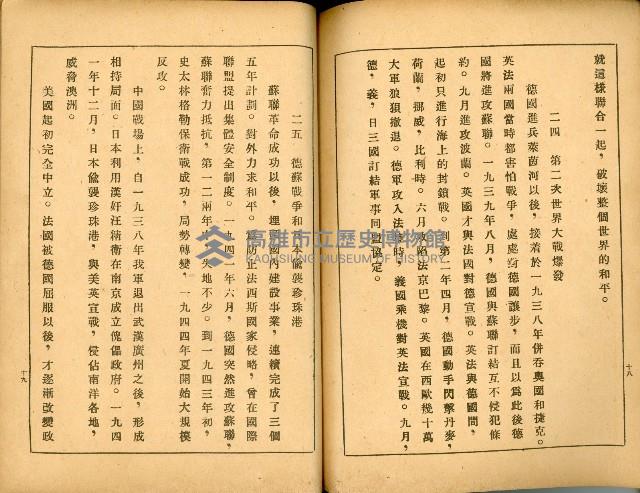 就這樣聯合一起，破壞整個世界的和平。
二四　第二次世界大戰爆發
德國進兵萊茵河以後，接着於一九三八年併吞奧國和捷克。
英法兩國當時都害怕戰爭，處處對德國讓步，而且以為此後德
國將進攻蘇聯。一九三九年八月，德國與蘇聯訂結互不侵犯條
約。九月進攻波蘭。英國才與法國對德宣戰。英法與德國間，
起初只進行海上的封鎖戰。到第二年四月，德國動手閃擊丹麥，
荷蘭，挪威，比利時。六月攻陷法京巴黎。英國在西歐幾十萬
大軍狼狽撤退。德軍攻入法京時，義國乘機對英法宣戰。九月，
德，義，日三國訂結軍事同盟協定。
十八
二五　德蘇戰爭和日本偷襲珍珠港
蘇聯革命成功以後，埋頭國內建設事業，連續完成了三個
五年計劃。對外力求和平。為防止法西斯國家侵略，曾在國際
聯盟提出集體安全制度。一九四一年六月，德國突然進攻蘇聯，
蘇聯奮力抵抗，第一二兩年失地不少。到一九四三年初，
史太林格勒保衛戰成功，局勢轉變，一九四四年夏開始大規模
反攻。
中國戰場上，自一九三八年我軍退出武漢廣州之後，形成
相持局面。日本利用漢奸汪衛在南京成立傀儡政府。一九四
一年十二月，日本偷襲珍珠港，與美英宣戰，侵佔南洋各地，
威脅澳洲。
美國起初完全中立。法國被德國屈服以後，才逐漸改變政
十九
高雄市立歷史博物館
KAOHSIUNG MUSEUM OF HISTORY